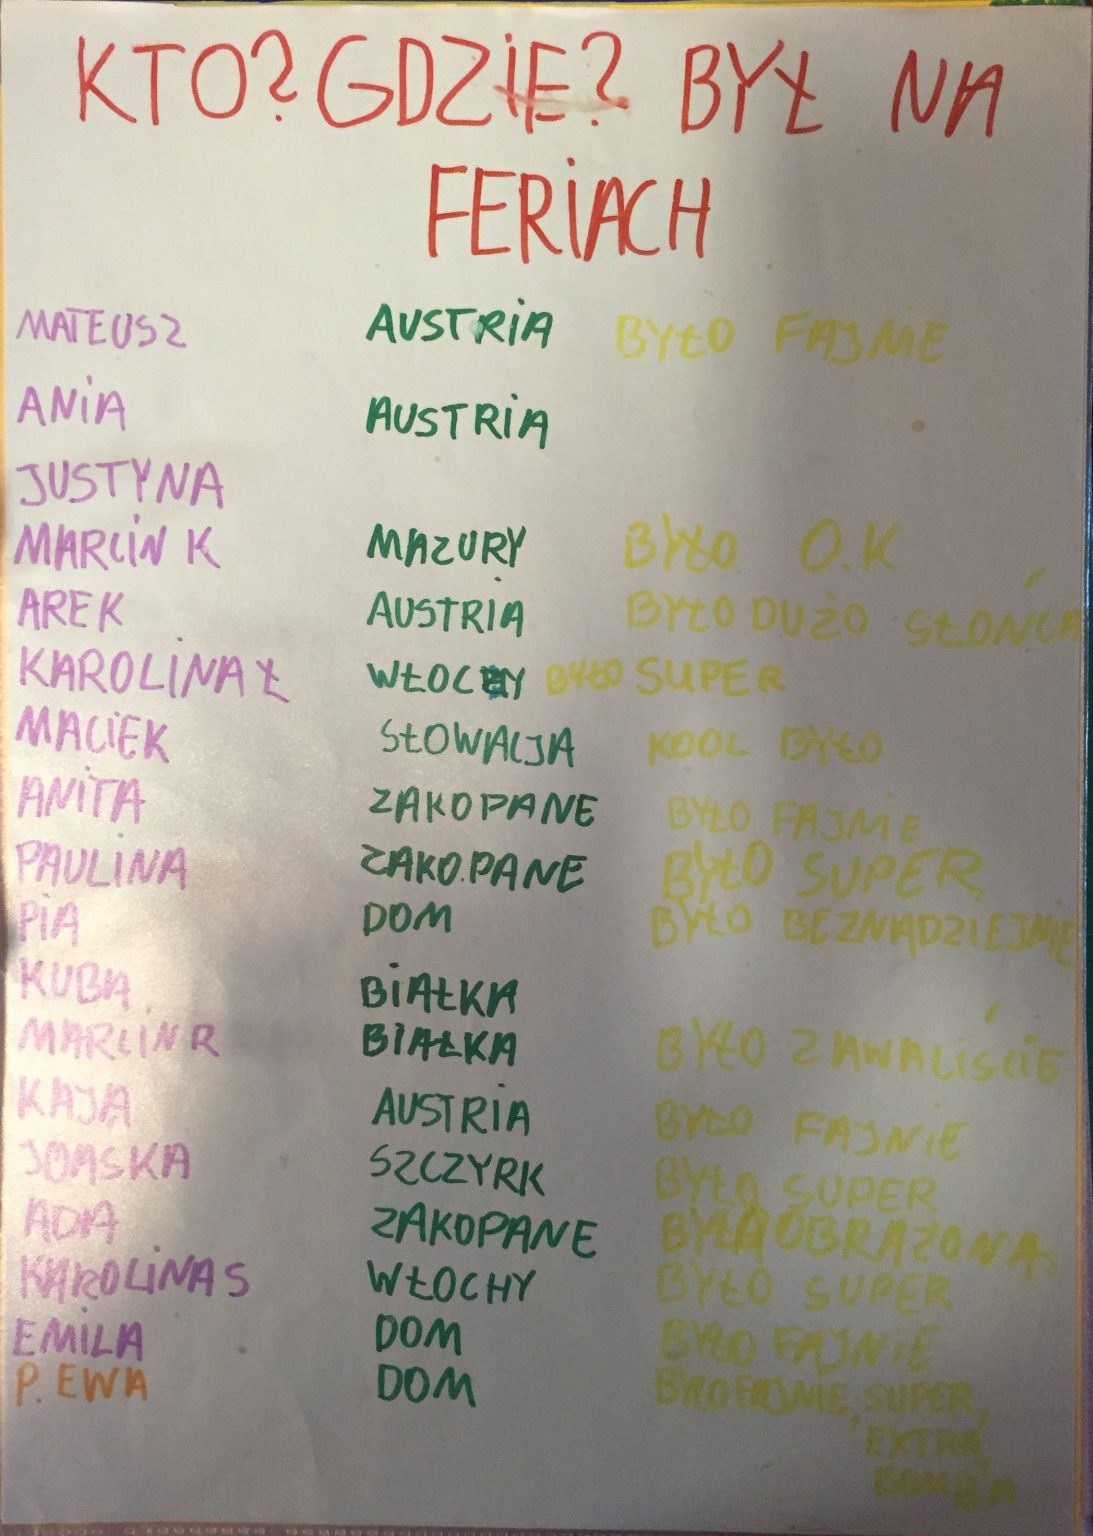 KTO? GDZIE? BYŁ NA
FERIACH
MATEUSZ AUSTRIA BYŁO FAJNIE
ANIA AUSTRIA
JUSTYNA
MARCIN K MAZURY BYŁO O.K
AREK AUSTRIA BYŁO DUŻO SŁOŃCA
KAROLINA Ł WŁOCHY BYŁO SUPER
MACIEK SŁOWACJA KOOL BYŁO
ANITA ZAKOPANE BYŁO FAJNIE
PAULINA ZAKOPANE BYŁO SUPER
PIA DOM BYŁO BEZNADZIEJNIE
KUBA BIAŁKA
MARCIN R BIAŁKA BYŁO ZAWALIŚCIE
KAJA AUSTRIA BYŁO FAJNIE
JOAŚKA SZCZYRK BYŁO SUPER
ADA ZAKOPANE BYŁA OBRAŻONA
KAROLINA S WŁOCHY BYŁO SUPER
EMILA DOM BYŁO FAJNIE
P. EWA DOM BYŁO FAJNIE, SUPER,
EXTRA,
BOMBA